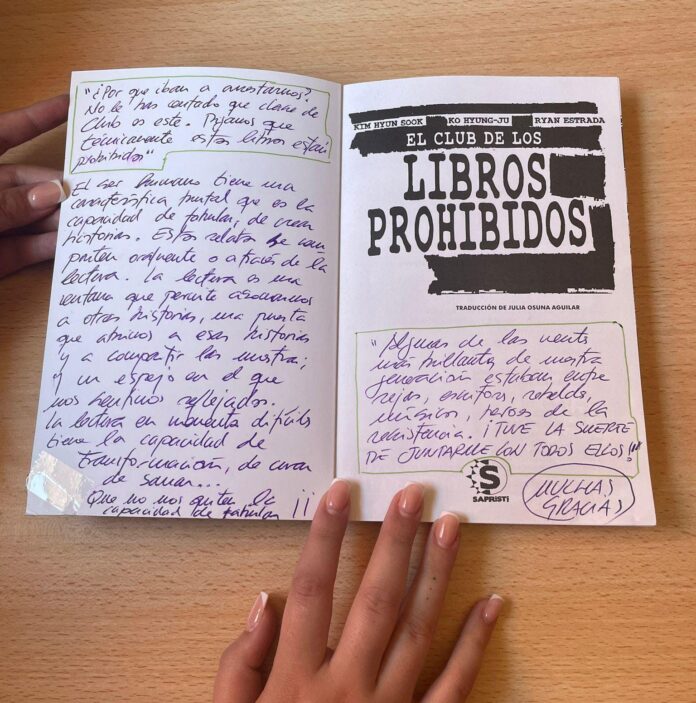 "¿Por que iban a arrestarnos?
No le has contado que clase de
Club es este. Digamos que
técnicamente estos libros están
prohibidos"
El ser humano tiene una
característica brutal que es la
capacidad de fabular, de crear
historias. Estos relatos se com
parten oralmente o a través de la
lectura. La lectura es una
ventana que permite asomarnos
a otras historias, una puerta
que abrimos a esas historias
y a compartir las nuestras;
y un espejo en el que
nos sentimos reflejados.
La lectura en momentos difíciles
tiene la capacidad de
transformación, de curar
de sanar...
Que no nos quiten la
capacidad de fabular !!
KIM HYUN SOOK KO HYUNG-JU RYAN ESTRADA
EL CLUB DE LOS
LIBROS
PROHIBIDOS
TRADUCCIÓN DE JULIA OSUNA AGUILAR
"Algunas de las mentes
más brillantes de nuestra
generación estaban entre
rejas, escritores, rebeldes,
músicos, héroes de la
resistencia. ¡TUVE LA SUERTE
DE JUNTARME CON TODOS ELLOS!"
S
SAPRISTI
MUCHAS
GRACIAS